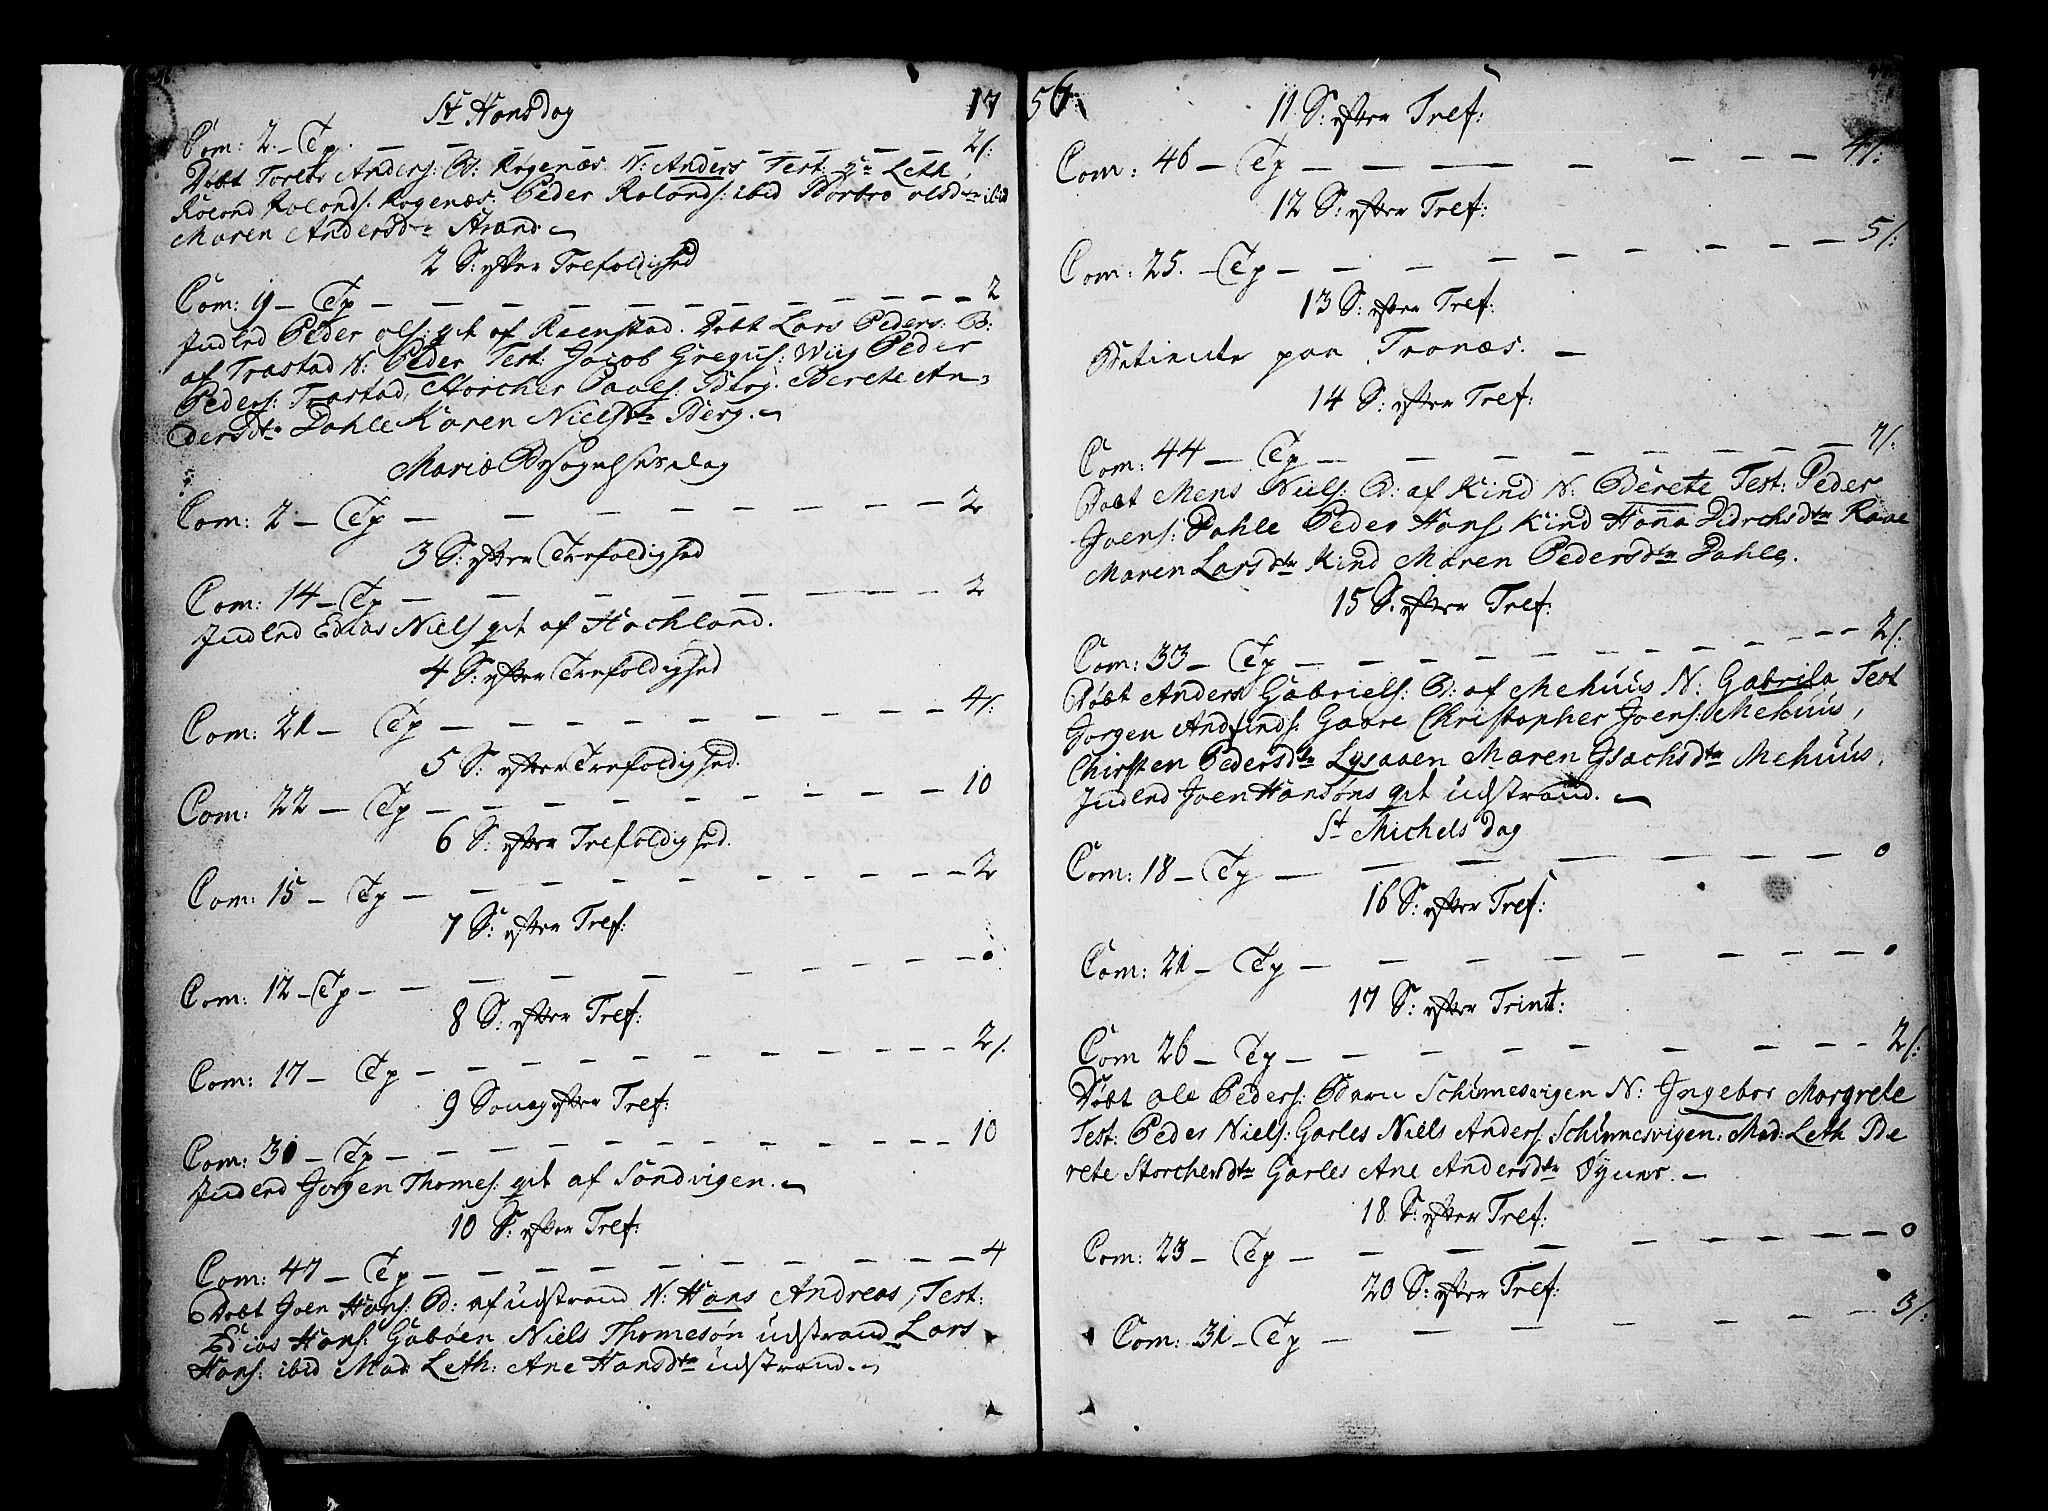 St Hansdag
Com: 2. – Tp. – – – – – – – – 2/:
Døbt Torber Anders: B: Røgenæs. N: Anders Test: Hr Leth,
Roland Rolands: Rogenæs. Peder Rolands: ibid Barbro olsdtr ibid
Maren Andersdtr Strand.
2 S: efter Trefoldighed
Com: 19 – Tp – – – – – – – – 2
Indled Peder ols: qvt af Reenstad. Døbt Lars Peders: B:
af Trastad N: Peder Test: Jacob Gregus: Wiig Peder
Peders: Trastad, Storcher Paals: Berg. Berete An=
dersdtr Dahle Karen Nielsdtr Berg.
Mariæ Besøgelsesdag
Com: 2 – Tp – – – – – – 2
3 S: efter Trefoldighed
Com: 14 – Tp – – – – – – 2
Indled Edias Niels qvt af Hochland.
4 S: efter Trefoldighed
Com: 21 – Tp – – – – – – 4/:
5 S: efter Trefoldighed.
Com: 22 – Tp – – – – – – 10
6 S: efter Trefoldighed.
Com: 15 – Tp – – – – – – 2
7 S: efter Tref:
Com: 12 – Tp – – – – – – 0
8 S: efter Tref:
Com: 17 – Tp – – – – – – 2/:
9 Sonag efter Tref:
Com: 31 – Tp – – – – – – 10
Indled Jorgen Thomes: qvt af Sandvigen.
10 S: efter Tref:
Com: 47 – Tp – – – – – – 4
Døbt Joen Hans: B: af udstrand N: Hans Andreas, Test:
Edias Hans: Gaböen Niels Thomesøn udstrand Lars
Hans: ibid Mad Leth: Ane Hansdtr udstrand.
1756
11 S: efter Tref:
Com: 46 – Tp – – – – – – 4/:
12 S: efter Tref:
Com: 25. – Tp – – – – – – 5/:
13 S: efter Tref:
Betiente paa Tronæs. –
14 S: efter Tref:
Com: 44 – Tp – – – – – – 7/:
Døbt Mens Niels: B: af Kind N: Berete Test: Peder
Joens: Dahle Peder Hans: Kind Hana Didrchsdtr Raae
Maren Larsdtr Kind Maren Pedersdtr Dahle.
15 S: efter Tref:
Com: 33 – Tp – – – – – – 2/:
Døbt Anders Gabriels: B: af Mehuus N: Gabrila Test
Jorgen Andfinds: Gaare Christopher Joens: Mehuus,
Chirsten Pedersdtr Lysaaen Maren Isachsdtr Mehuus.
Indled Joen Hansøns qvt udstrand.
St Michels dag
Com: 18 – Tp – – – – – – 0
16 S: efter Tref:
Com: 21 – Tp – – – – – – 0
17 S: efter Trint:
Com 26 – Tp – – – – – – 2/:
Døbt ole Peders: Barn Schinnesvigen N: Ingebor Margrete
Test: Peder Niels: Garles Niels Anders: Schinnesvigen: Mad: Leth Be
rete Storchersdtr Garles Ane Andersdtr Øynes.
18 S: efter Tref:
Com: 23 – Tp – – – – – – 0
20 S: efter Tref:
Com: 31 – Tp – – – – – – 3/: